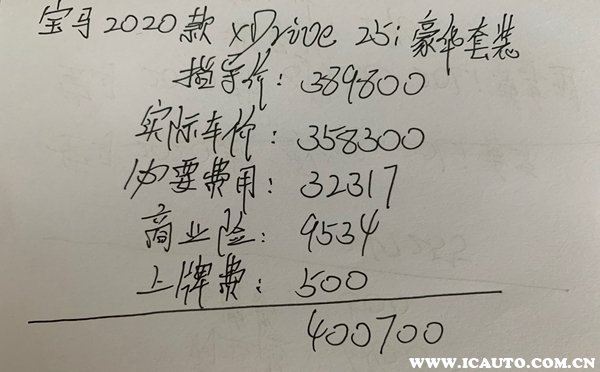 宝马2020款 xDrive 25i 豪华套装
指导价：389800
实际车价：358300
必要费用：32317
商业险：9534
上牌费：500
400700
WWW.ICAUTO.COM.CN